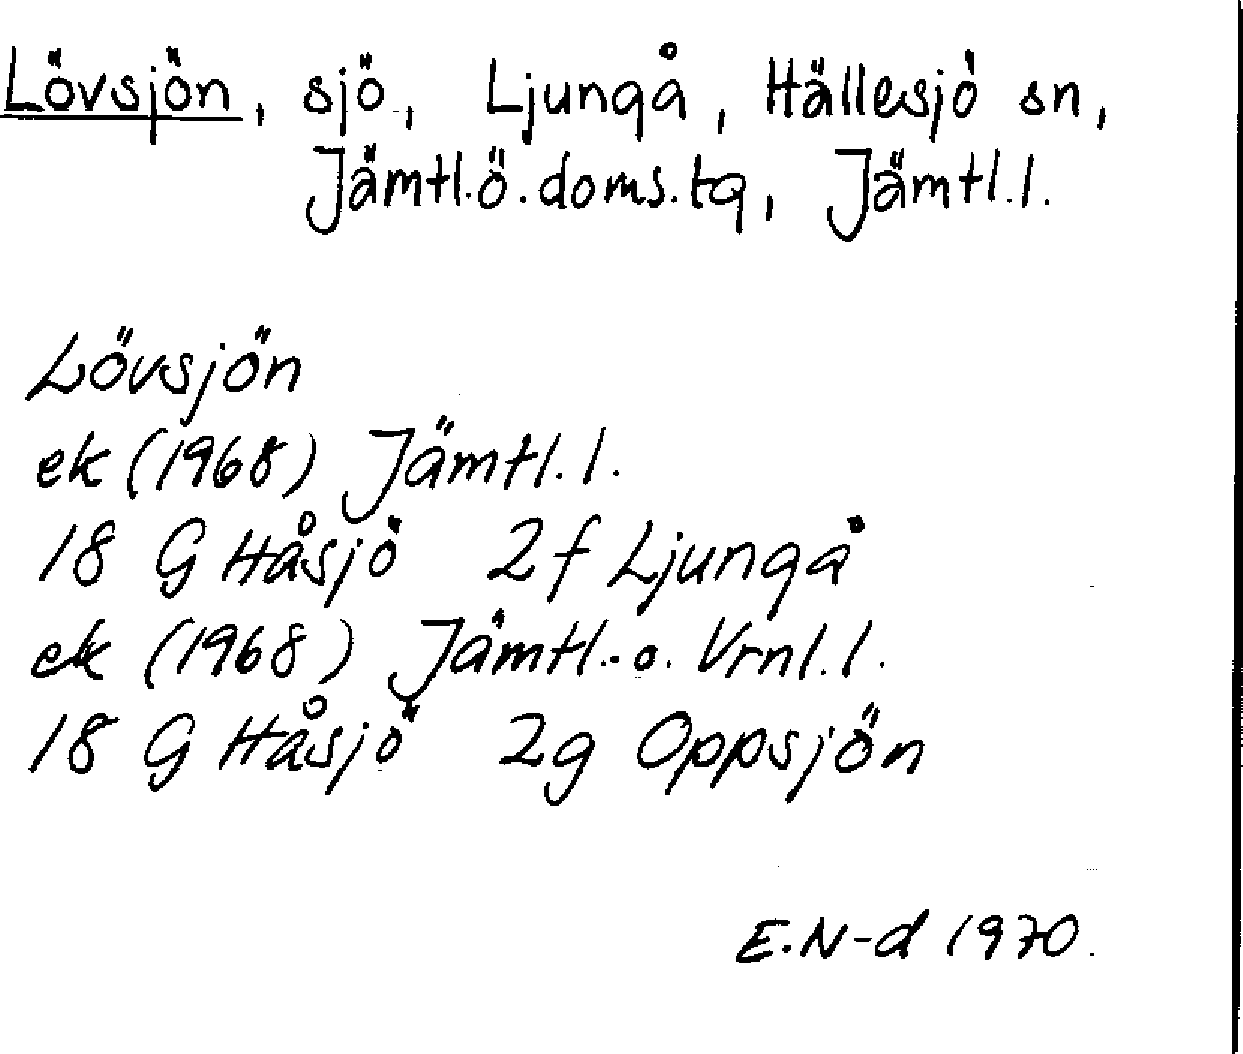 Lövsjön, sjö, Ljungå, Hällesjö sn,
Jämtl.ö.doms.tg, Jämtl.l.
Lövsjön
ek (1968) Jämtl.l.
18 G Håsjö 2f Ljungå
ek (1968) Jämtl.-o. Vrnl.l.
18 G Håsjö 2g Oppsjön
E.N-d 1970.